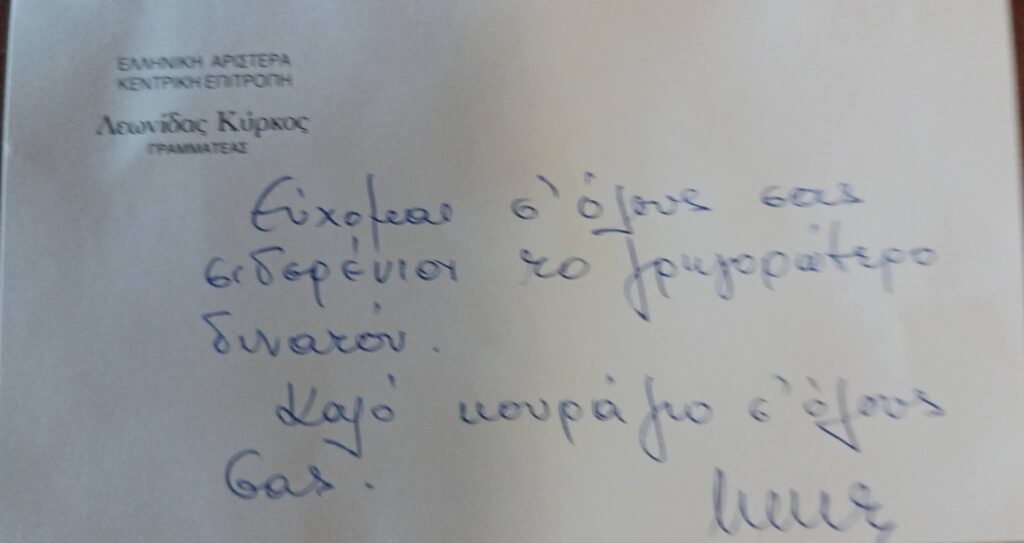 ΕΛΛΗΝΙΚΗ ΑΡΙΣΤΕΡΑ
ΚΕΝΤΡΙΚΗ ΕΠΙΤΡΟΠΗ
Λεωνίδας Κύρκος
ΓΡΑΜΜΑΤΕΑΣ
Εύχομαι σ' όλους σας
σιδερένιοι το γρηγορώτερο
δυνατόν.
Καλό κουράγιο σ' όλους
σας.